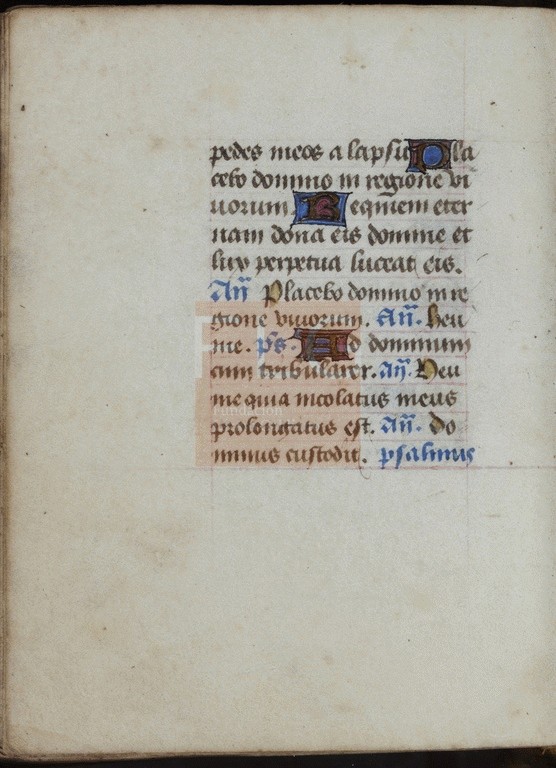 pedes meos a lapsu Pla
cebo domino in regione vi
uorum. Requiem eter
nam dona eis domine et
lux perpetua luceat eis.
An̄ Placebo domino in re
gione viuorum. An̄. heu
me. ps. Ad dominum
cum tribularer. An̄. Heu
me quia incolatus meus
prolongatus est. An̄. do
minus custodit. psalmus
Fundación